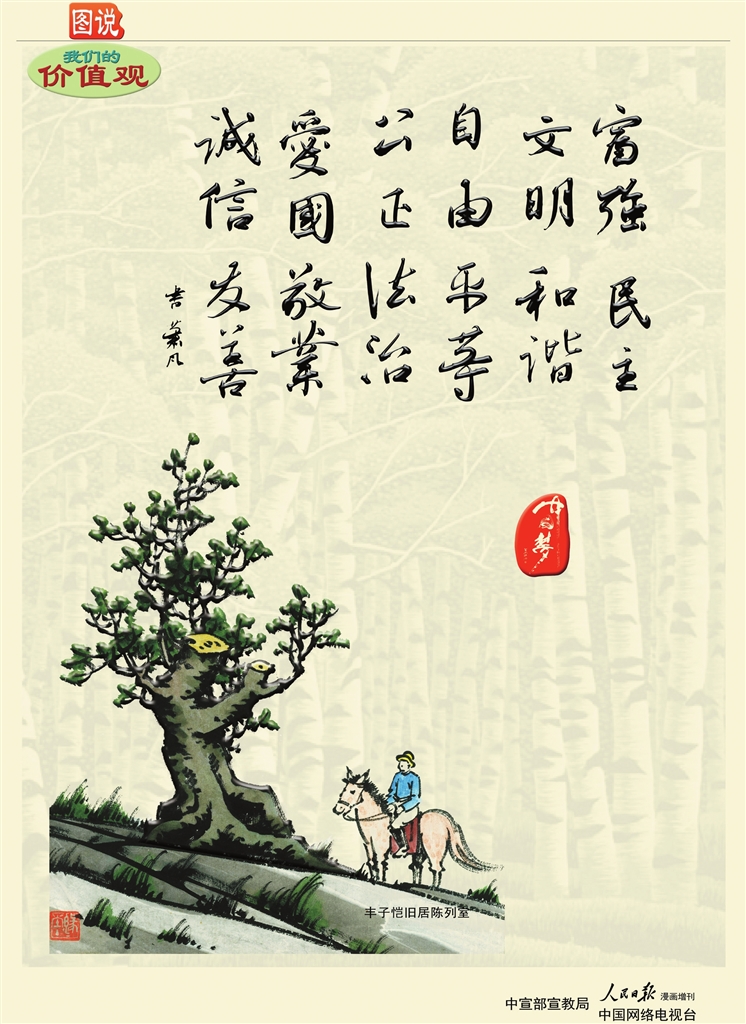 图说
我们的
价值观
富强 民主
文明 和谐
自由 平等
公正 法治
愛國 敬業
诚信 友善
书 萧凡
中国梦
丰子恺旧居陈列室
中宣部宣教局
人民日报 漫画增刊
中国网络电视台